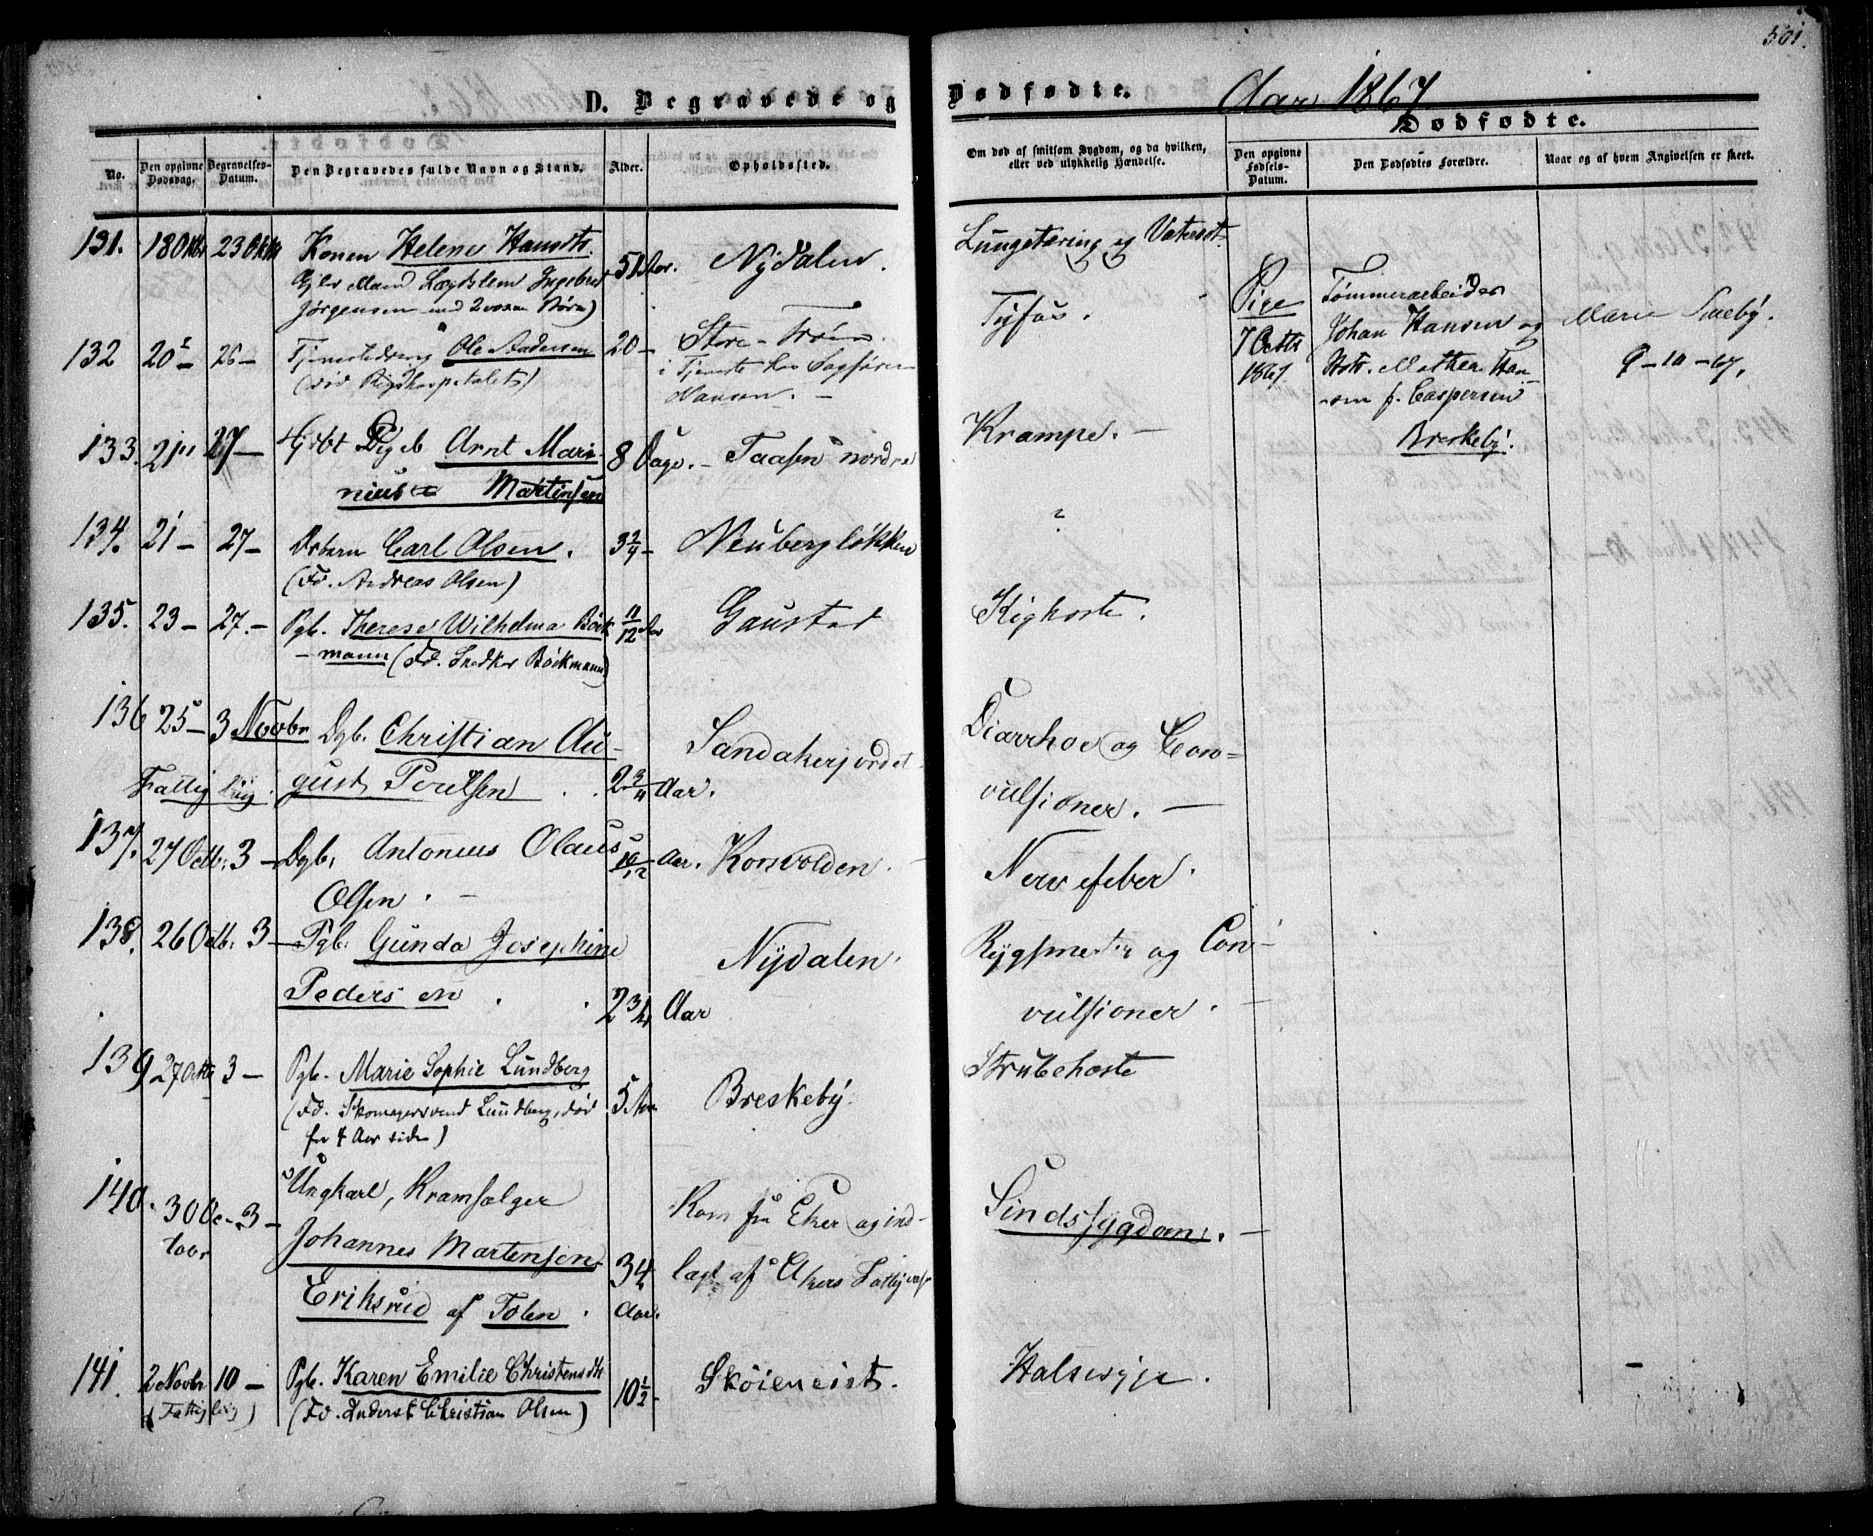 501.
D. Begravede og Dødfødte. Aar 1867
Dødfødte.
No.
Den opgivne Dødsdag.
Begravelses-Datum.
Den Begravedes fulde Navn og Stand.
Alder.
Opholdssted.
Om død af smitsom Sygdom, og da hvilken, eller ved ulykkelig Hændelse.
Den opgivne Fødsels-Datum.
Den Dødfødtes Forældre.
Naar og af hvem Angivelsen er skeet.
131. 18 Oktbr 23 Oktbr Konen Helene Hansdtr. 51 Aar. Nydalen. Lungetæring og Vatersot
Mand Lægdslem Ingebret
Jørgensen med 2 voxne Børn)
132 20 26 – Tjenestedreng Ole Andersen 20 – Store – Tyfus.
(død Rigshospitalet) i Tjeneste hos Sagfører
Hansen. –
Pige
7 Octbr
1867
Tømmerarbeider
Johan Hansen og
Hstr. Mathea Han-
sen f. Caspersen
Breskeby.
Marie
9 – 10 – 67,
133. 21 27 – Hjdbt Dgeb Arnt Mari- 8 Dage. – Taasen nordre Krampe. –
nius Martinsen
134. 21 – 27 – Dbarn Carl Olsen. 3 3/4 – Neubergløkken ?
(Fd. Andreas Olsen)
135. 23 – 27. – Pgb. Therese Wilhelmina Böck- 11/12 Aar Gaustad Kighoste.
mann (Fd. Snedker Böckmann)
136 25 – 3 Novbr Dgb. Christian Au- Sandakerjordet. Diarrhoe og Con-
Fattig Liig. gust Poulsen . . 2 3/4 Aar. vulsioner. –
137. 27 Octb. 3 – Dgb. Antonius Olaus 10/12 Aar. Korsvolden. Nervefeber.
Olsen. –
138. 26 Octb. 3 – Pgb. Gunda Josephine Nydalen. og Con-
Pedersen . . 2 3/4 Aar vulsioner. –
139 27 Octbr 3 – Pgb. Marie Sophie Lundberg 5 Aar Breskeby. Strubehoste
(Fd. Skomagersvend Lundberg, død
for 4 Aar siden)
140. 30 Oc- 3 – Ungkarl, Kramsælger Kom fra Eker og ind- Sindssygdom. –
tobr Johannes Martensen 34 lagt af Akers Fattigvæs
Eriksrud af Tolen . Aar.
141. 2 Novbr 10 – Pgb. Karen Emilie Christensdtr 10 1/2 – Skøieneiet. Halsesyge.
(Fattig Liig) (Fd. Inderst Christian Olsen)